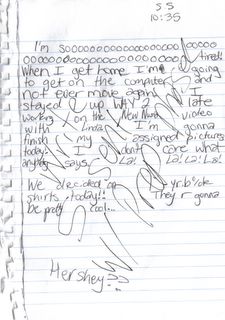 S S
10:35
I'm Soooooooooooooooo
ooooooooooooooooooo tired!
When I get home I'm going
to get on the computer and
not ever move again. I
stayed up WAY 2 late
working on the New video
with Linda I'm gonna
finish my assigned pictures
today! I don't care what
anything says. La! La! La! La!
We decided on yrb%k
shirts today!! They r gonna
be pretty cool...
Hershey??